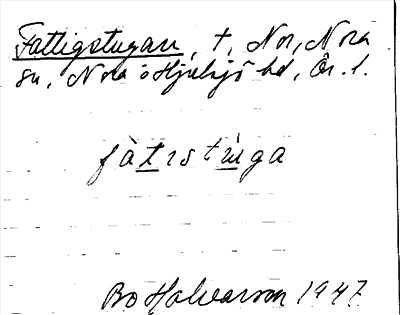 Fattigstugan, t, Nor, Nora
sn, Nora o Hjulsjö hd, Ör. l.
fàtıstùga
Bo Halvarson 1947